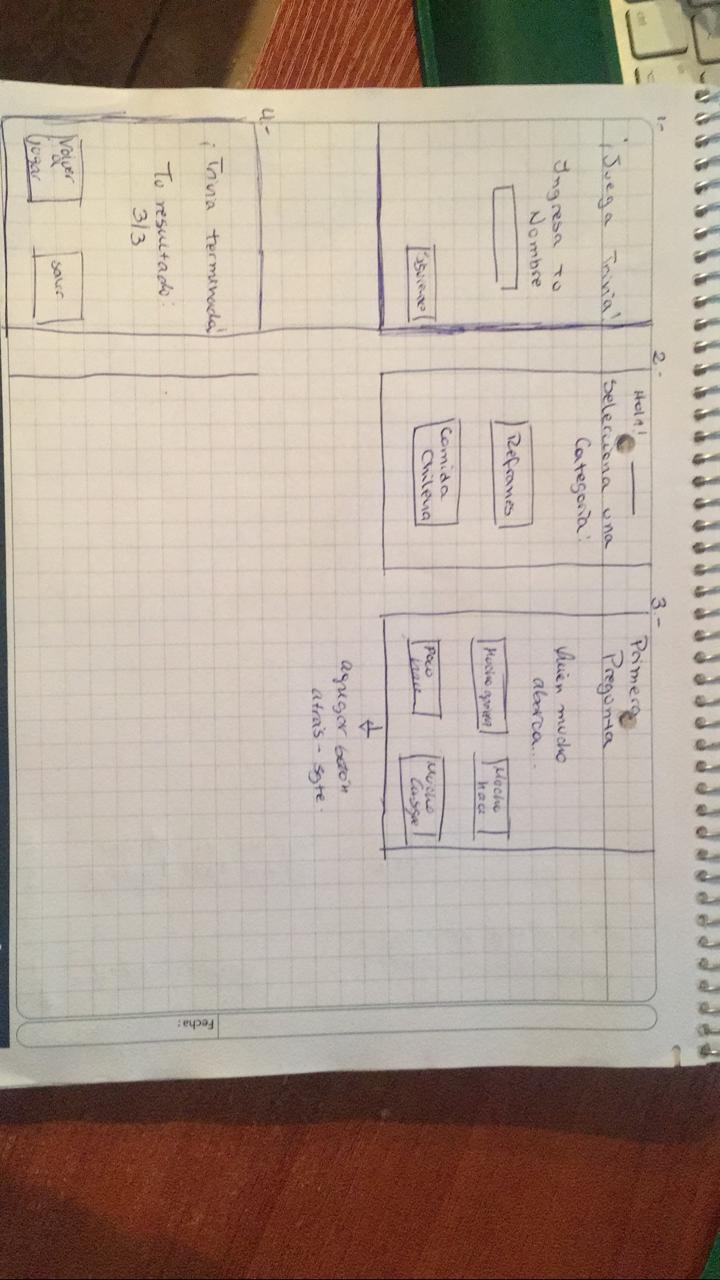 1.-
¡Juega Trivia!
Ingresa tu
Nombre
Siguiente
2.-
Hola!
Selecciona una
Categoría:
Refranes
Comida
Chilena
3.-
Primera
Pregunta
Quien mucho
abarca...
Mucho aprieta
Mucho
hace
Poco
Mucho
agregar botón
atrás - sgte.
4.-
¡Trivia terminada!
Tu resultado:
3/3
Volver
a
jugar
Salir
Fecha: